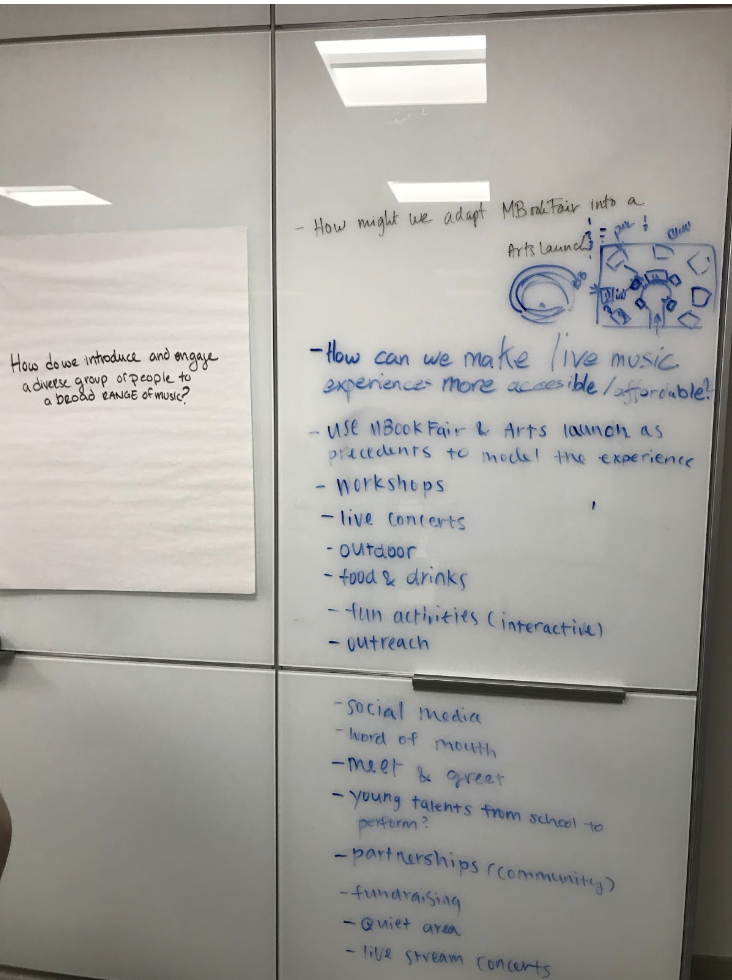 How do we introduce and engage
a diverse group of people to
a broad RANGE of music?
- How might we adapt MBookFair into a
Arts Launch?
- How can we make live music
experiences more accesible/affordable?
- use MBook Fair & Arts launch as
precedents to model the experience
- Workshops
- live concerts
- outdoor
- food & drinks
- fun activities (interactive)
- outreach
- social media
- word of mouth
- meet & greet
- young talents from school to
perform?
- partnerships (community)
- fundraising
- Quiet area
- live stream concerts